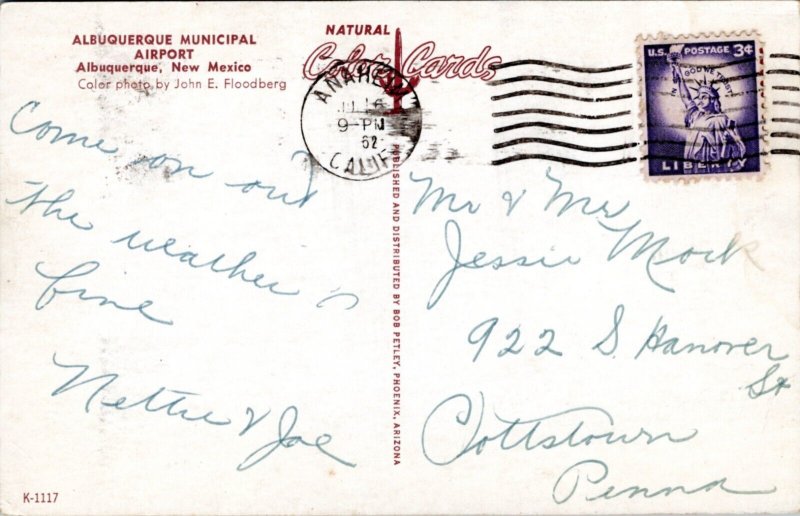 ALBUQUERQUE MUNICIPAL
AIRPORT
Albuquerque, New Mexico
Color photo by John E. Floodberg
NATURAL
Color Cards
ANAHEIM
9-PM
62
CALIF
U.S. POSTAGE 3¢
IN GOD WE TRUST
LIBERTY
Come on out
the weather is
fine
Nettie & Joe
PUBLISHED AND DISTRIBUTED BY BOB PETLEY, PHOENIX, ARIZONA
Mr & Mrs
Jessie Mock
922 S. Hanover
St
Pottstown
Penna
K-1117